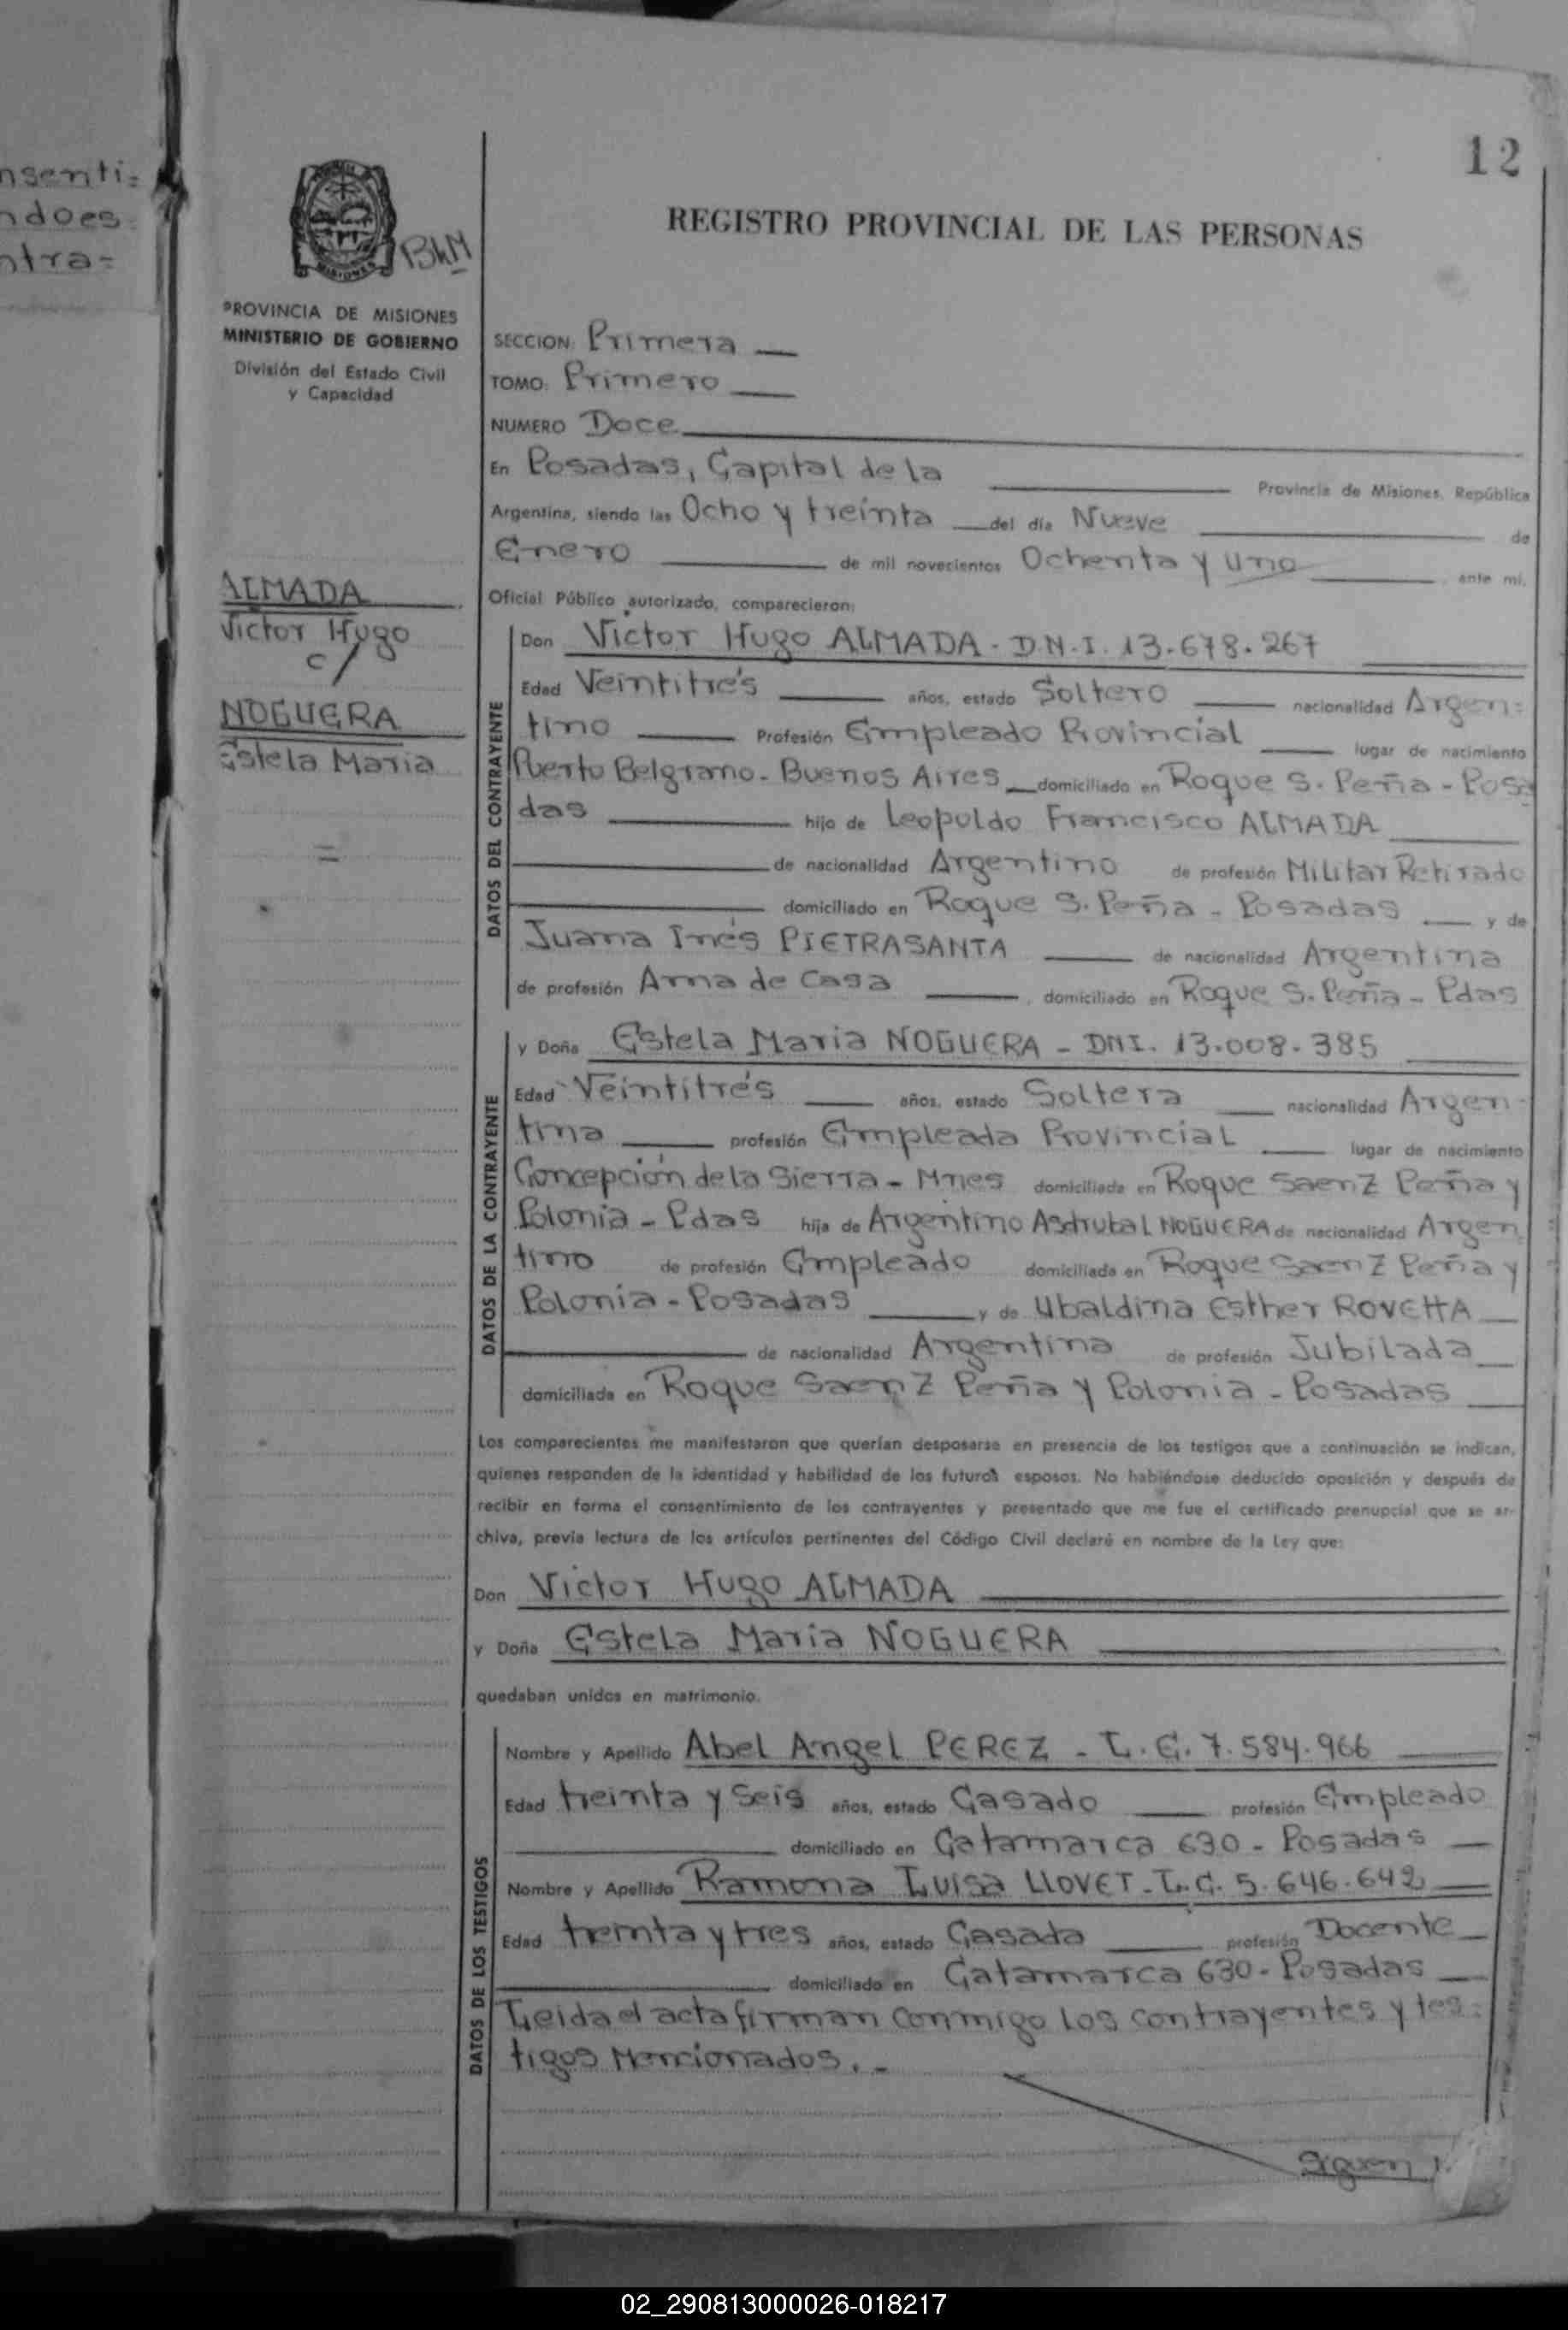 nsenti=
ndoes
ntra-
12
MISIONES
PROVINCIA DE MISIONES
MINISTERIO DE GOBIERNO
División del Estado Civil
y Capacidad
ALMADA
Victor Hugo
c/
NOGUERA
Estela Maria
=
REGISTRO PROVINCIAL DE LAS PERSONAS
SECCION: Primera
TOMO: Primero
NUMERO Doce
En Posadas, Capital de la Provincia de Misiones, República
Argentina, siendo las Ocho y treinta del día Nueve de
Enero de mil novecientos Ochenta y uno ante mí,
Oficial Público autorizado, comparecieron:
DATOS DEL CONTRAYENTE
Don Victor Hugo ALMADA - D.N.I. 13.678.267
Edad Veintitrés años, estado Soltero nacionalidad Argen=
tino Profesión Empleado Provincial lugar de nacimiento
Puerto Belgrano - Buenos Aires domiciliado en Roque S. Peña - Posa
das hijo de Leopoldo Francisco ALMADA
de nacionalidad Argentino de profesión Militar Retirado
domiciliado en Roque S. Peña - Posadas y de
Juana Inés PIETRASANTA de nacionalidad Argentina
de profesión Ama de Casa, domiciliado en Roque S. Peña - Pdas
DATOS DE LA CONTRAYENTE
y Doña Estela Maria NOGUERA - DNI. 13.008.385
Edad Veintitrés años, estado Soltera nacionalidad Argen-
tina profesión Empleada Provincial lugar de nacimiento
Concepción de la Sierra - Mnes domiciliada en Roque Saenz Peña y
Polonia - Pdas hija de Argentino Asdrubal NOGUERA de nacionalidad Argen
tino de profesión Empleado domiciliado en Roque Saenz Peña y
Polonia - Posadas y de Ubaldina Esther ROVETTA
de nacionalidad Argentina de profesión Jubilada
domiciliada en Roque Saenz Peña y Polonia - Posadas
Los comparecientes me manifestaron que querían desposarse en presencia de los testigos que a continuación se indican,
quienes responden de la identidad y habilidad de los futuros esposos. No habiéndose deducido oposición y después de
recibir en forma el consentimiento de los contrayentes y presentado que me fue el certificado prenupcial que se ar-
chiva, previa lectura de los artículos pertinentes del Código Civil declaré en nombre de la Ley que:
Don Victor Hugo ALMADA
y Doña Estela Maria NOGUERA
quedaban unidos en matrimonio.
DATOS DE LOS TESTIGOS
Nombre y Apellido Abel Angel PEREZ - L.E. 7.584.966
Edad treinta y Seis años, estado Casado profesión Empleado
domiciliado en Catamarca 630 - Posadas
Nombre y Apellido Ramona Luisa LLOVET - L.C. 5.646.642
Edad treinta y tres años, estado Casada profesión Docente
domiciliado en Catamarca 630 - Posadas
Leida el acta firman conmigo los contrayentes y tes=
tigos Mencionados.-
Siguen
02_290813000026-018217